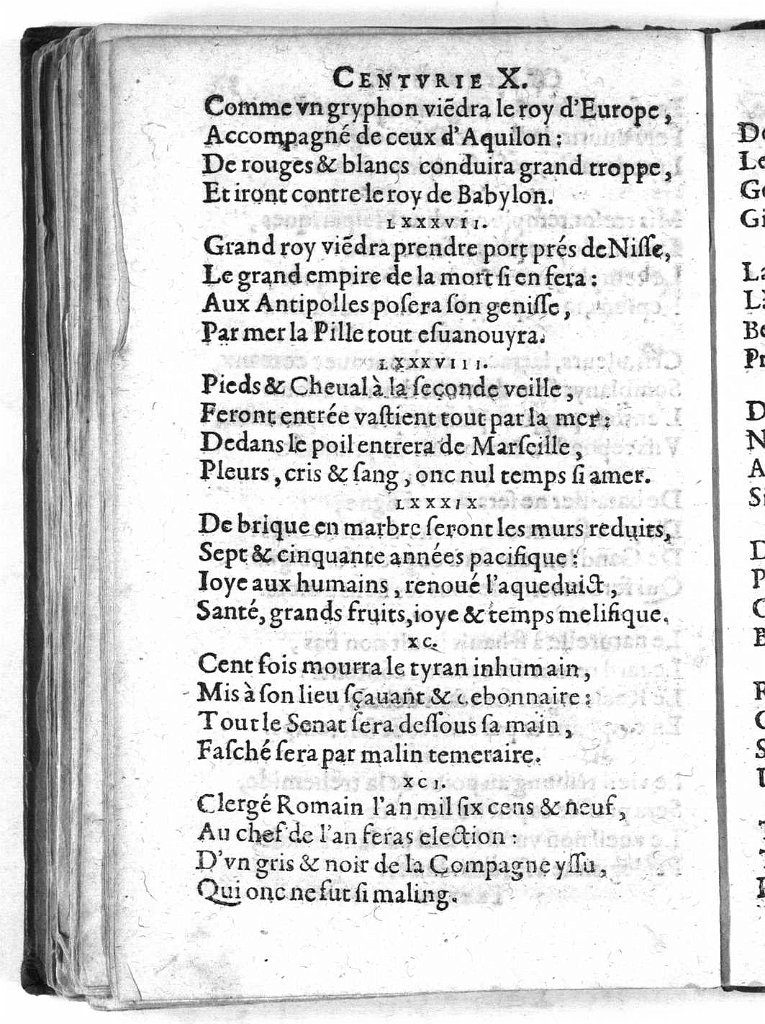 CENTVRIE X.
Comme vn gryphon viẽdra le roy d'Europe,
Accompagné de ceux d'Aquilon:
De rouges & blancs conduira grand troppe,
Et iront contre le roy de Babylon.
LXXXVII.
Grand roy viẽdra prendre port prés de Niſſe,
Le grand empire de la mort ſi en fera:
Aux Antipolles poſera ſon geniſſe,
Par mer la Pille tout eſuanouyra.
LXXXVIII.
Pieds & Cheual à la ſeconde veille,
Feront entrée vaſtient tout par la mer:
Dedans le poil entrera de Marſeille,
Pleurs, cris & ſang, onc nul temps ſi amer.
LXXXIX.
De brique en marbre ſeront les murs reduits,
Sept & cinquante années pacifique:
Ioye aux humains, renoué l'aqueduict,
Santé, grands fruits, ioye & temps melifique.
XC.
Cent fois mourra le tyran inhumain,
Mis à ſon lieu ſçauant & debonnaire:
Tout le Senat ſera deſſous ſa main,
Faſché ſera par malin temeraire.
XCI.
Clergé Romain l'an mil ſix cens & neuf,
Au chef de l'an feras election:
D'vn gris & noir de la Compagne yſſu,
Qui onc ne fut ſi maling.
De
Le
Gi
La
Pr